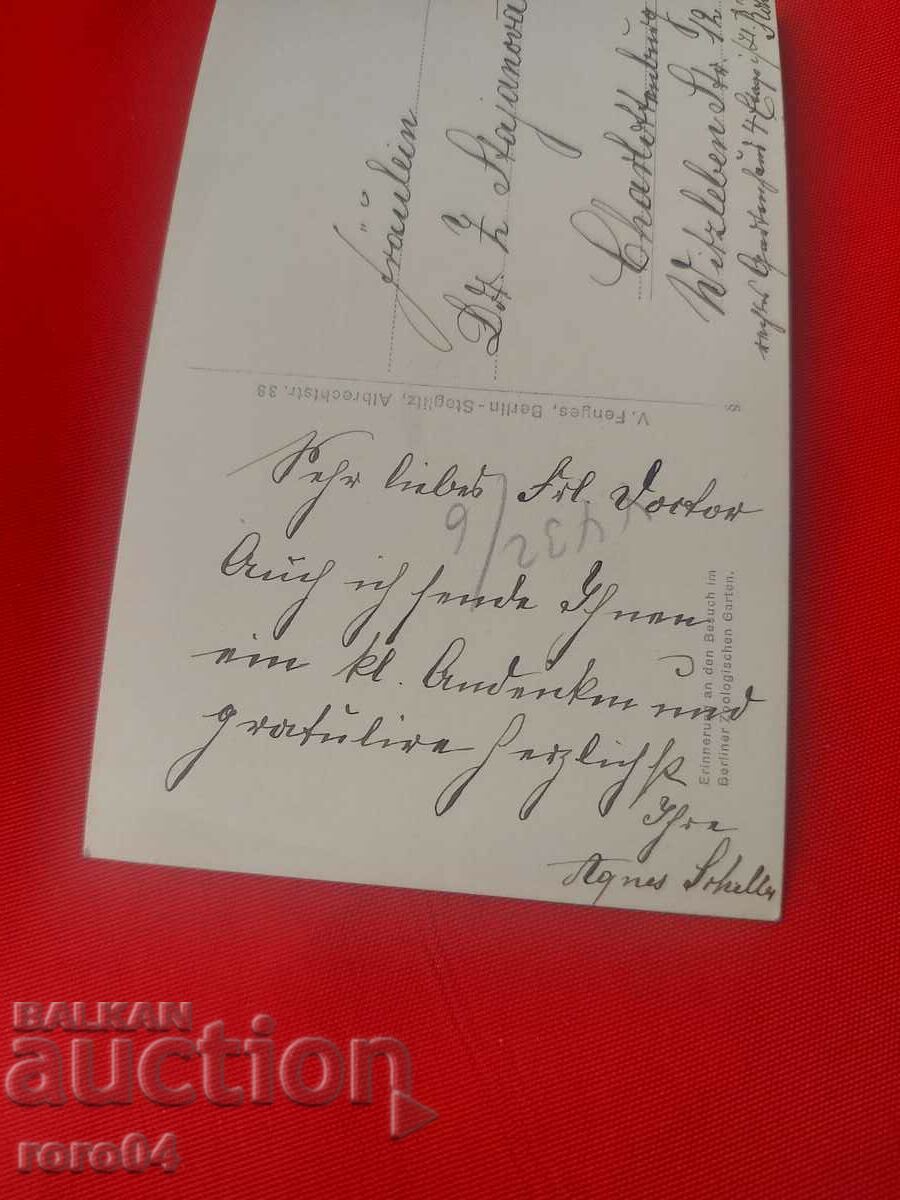 Sehr liebes Frl. Doctor
Auch ich sende Ihnen
ein kl. Andenken und
gratulire herzlichst
Ihre
Agnes
Fräulein
Dr. Z Stajanova
Charlottenburg
Witzleben Str. 12
rechtes Gartenhaus
V. Fenges, Berlin-Steglitz, Albrechtstr. 38
Erinnerung an den Besuch im
Berliner Zoologischen Garten.
432
6
BALKAN
auction
roro04